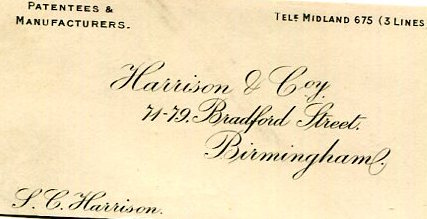 PATENTEES &
MANUFACTURERS.
TELE MIDLAND 675 (3 LINES)
Harrison & Coy.
71-79. Bradford Street.
Birmingham.
S. C. Harrison.